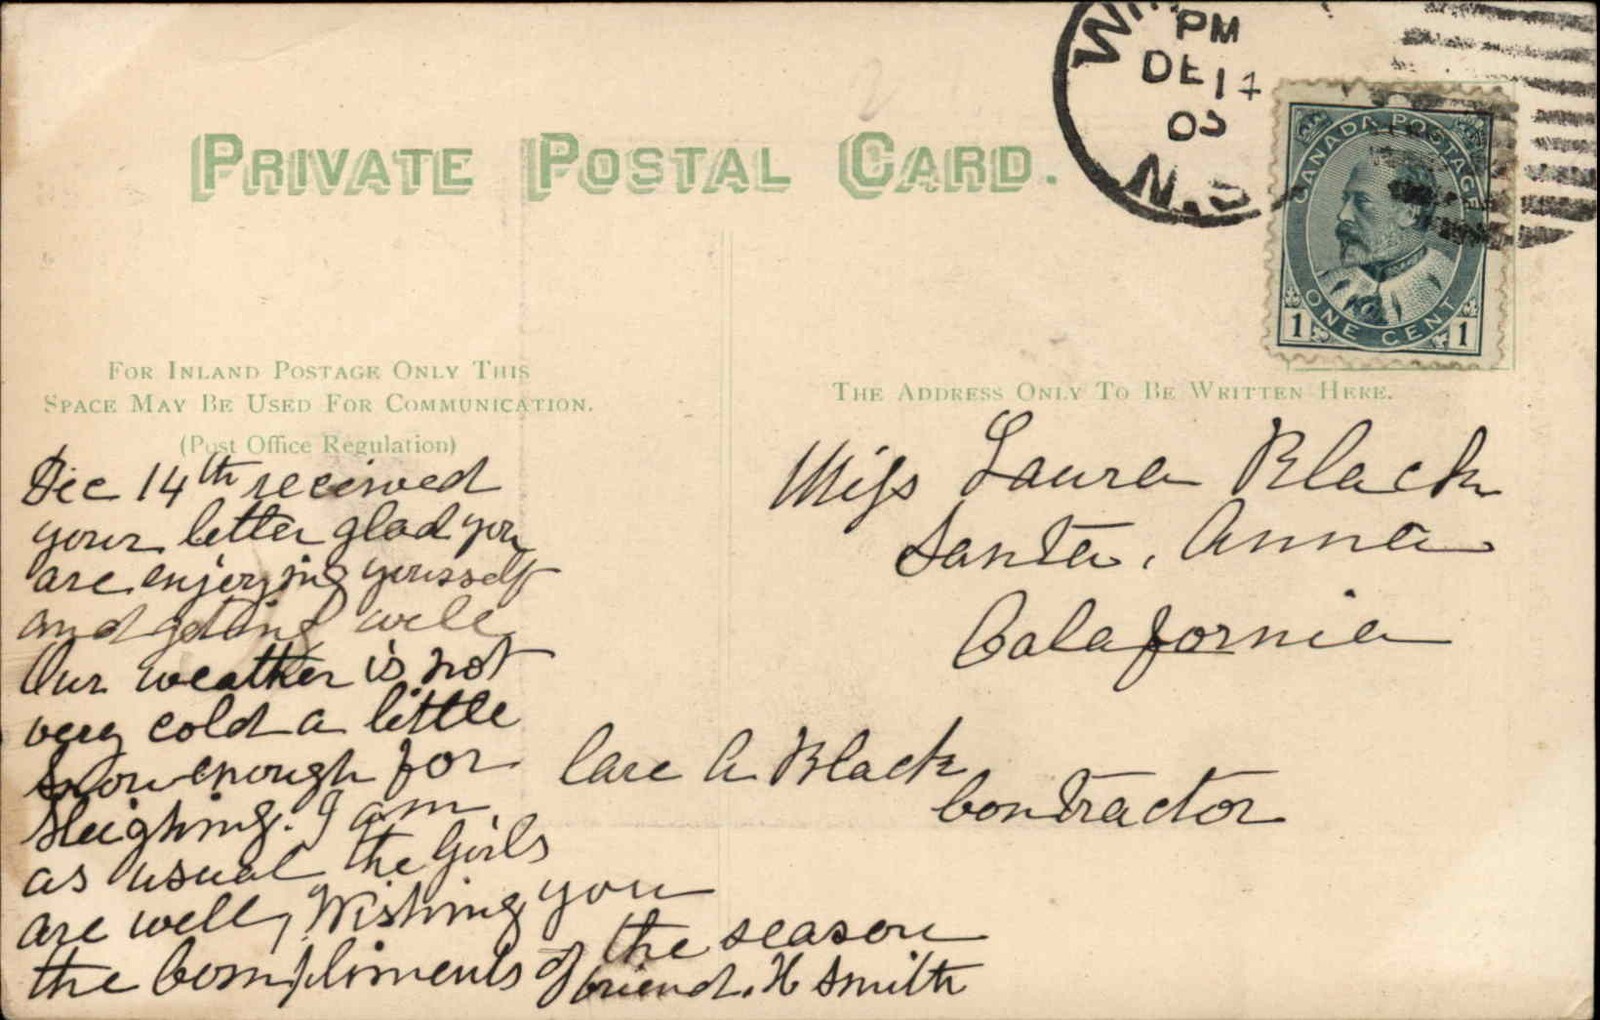 PM
DE 14
N.S
CANADA POSTAGE
ONE CENT
1 1
PRIVATE POSTAL CARD.
FOR INLAND POSTAGE ONLY THIS
SPACE MAY BE USED FOR COMMUNICATION.
(Post Office Regulation)
THE ADDRESS ONLY TO BE WRITTEN HERE.
Dec 14th received
your letter glad you
are enjoying yourself
and getting well
Our weather is not
very cold a little
snow enough for
sleighing. I am
as usual the Girls
are well, Wishing you
the Compliments of the season
friend. H Smith
Miss Laura Black
Santa, Anna
Calafornia
Care A Black
Contractor